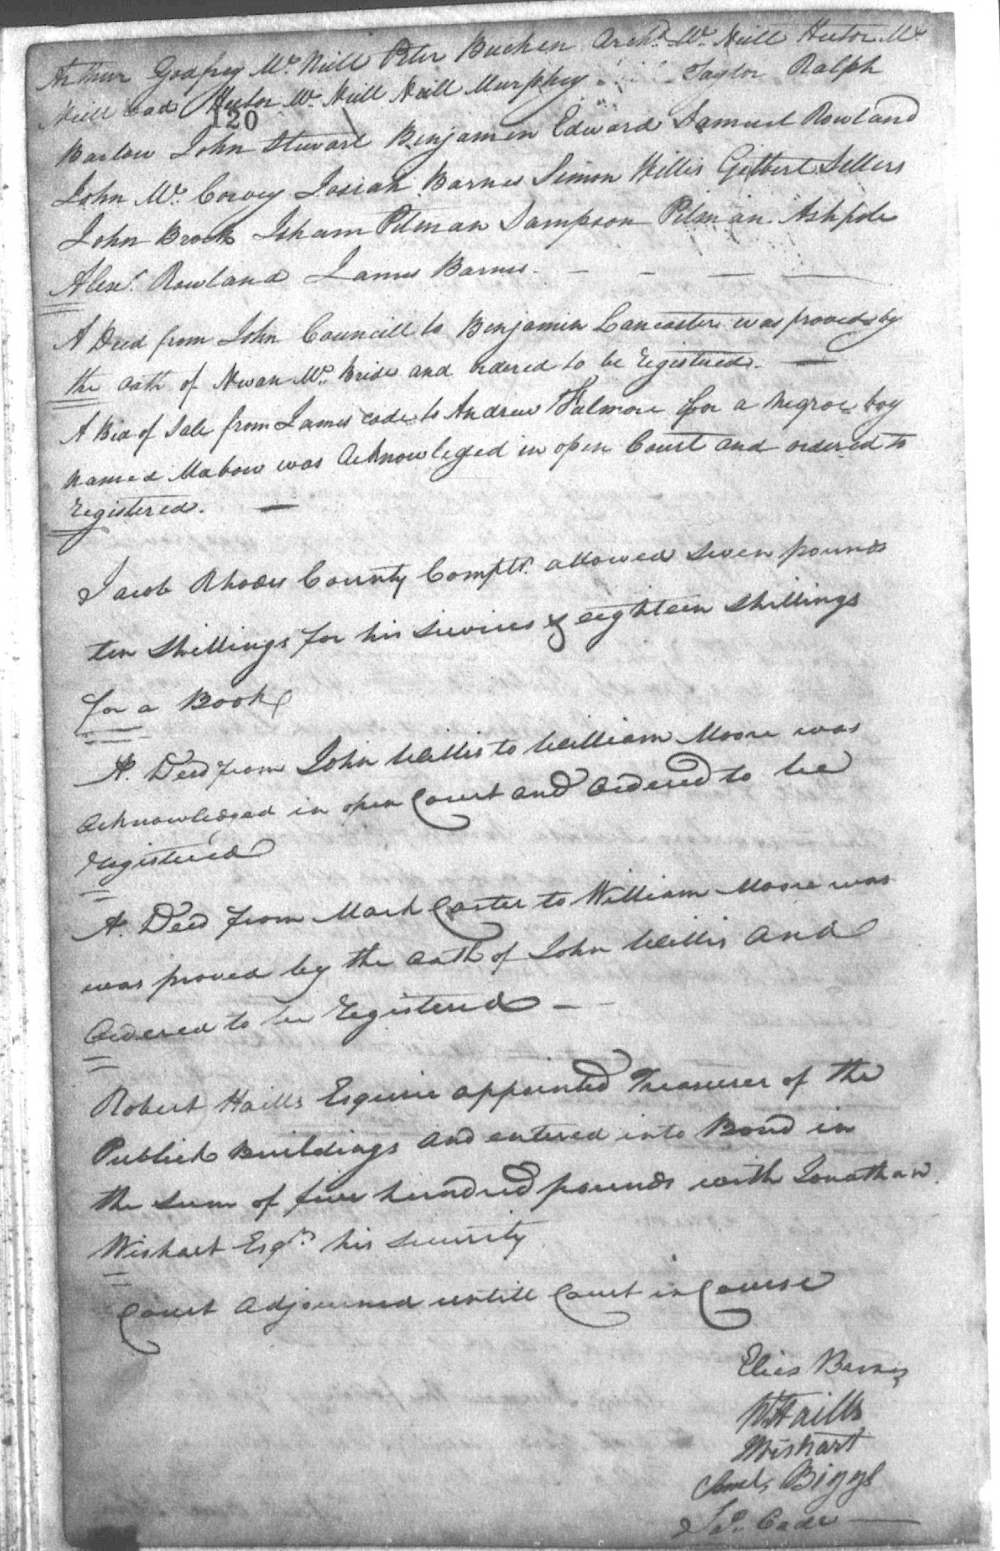 Arthur Godfrey Mc Neill Peter Buchan Archd. Mc Neill Hector Mc
Neill Hector Mc Neill Neill Murphey Taylor Ralph
120
Barlow John Stewart Benjamin Edward Samuel Rowland
John Mc. Josiah Barnes Simon Willis Gilbert Sellers
John Brock Isham Pitman Sampson Pitman Ashpole
Alexr. Rowland James Barnes
A Deed from John Councill to Benjamin Lancaster was proved by
the oath of Mc. Bride and ordered to be registered.
A Bill of Sale from James Cade to Andrew for a negroe boy
named Mabow was acknowleged in open Court and ordered to
registered.
Jacob Rhodes County Comptr. allowed seven pounds
ten Shillings for his services & eighteen shillings
for a Book
A Deed from John Willis to William Moore was
acknowledged in open Court and ordered to be
registered
A Deed from Mark Carter to William Moore was
was proved by the oath of John Willis and
ordered to be registered
Robert Haills Esquire appointed Treasurer of the
Publick Buildings and entered into Bond in
the sum of five hundred pounds with Jonathan
Wishart Esqr. his security
Court adjourned untill Court in Course
Elias Barnes
Haills
Wishart
Biggs
Jas. Cade